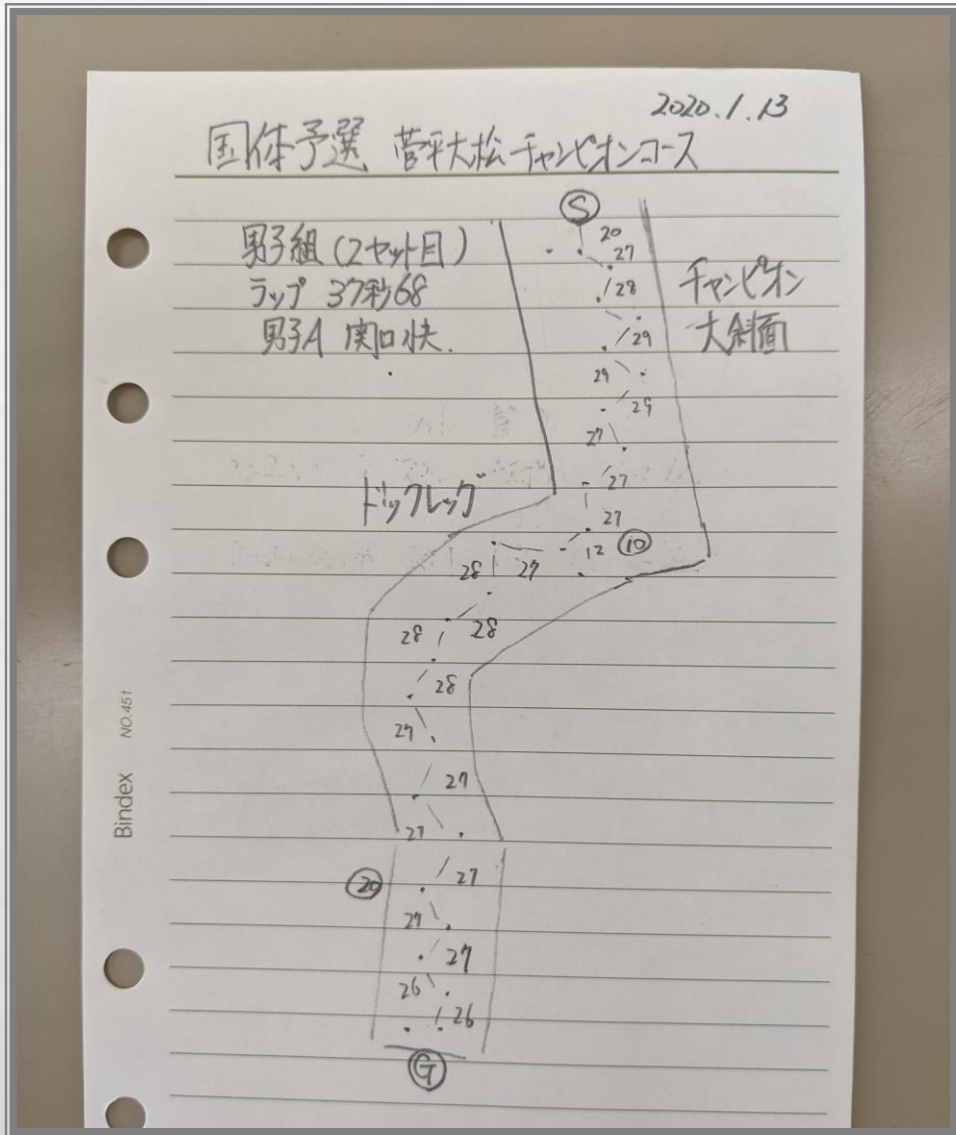 2020.1.13
国体予選 菅平大松チャンピオンコース
Ⓢ
男子組(2セット目)
ラップ 37秒68
男子A 関口快.
チャンピオン
大斜面
20
27
28
29
29
29
27
27
27
12 ⑩
ドックレッグ
27
28
28
28
28
29
27
27
27
⑳
27
27
26
26
Ⓖ
Bindex NO.451